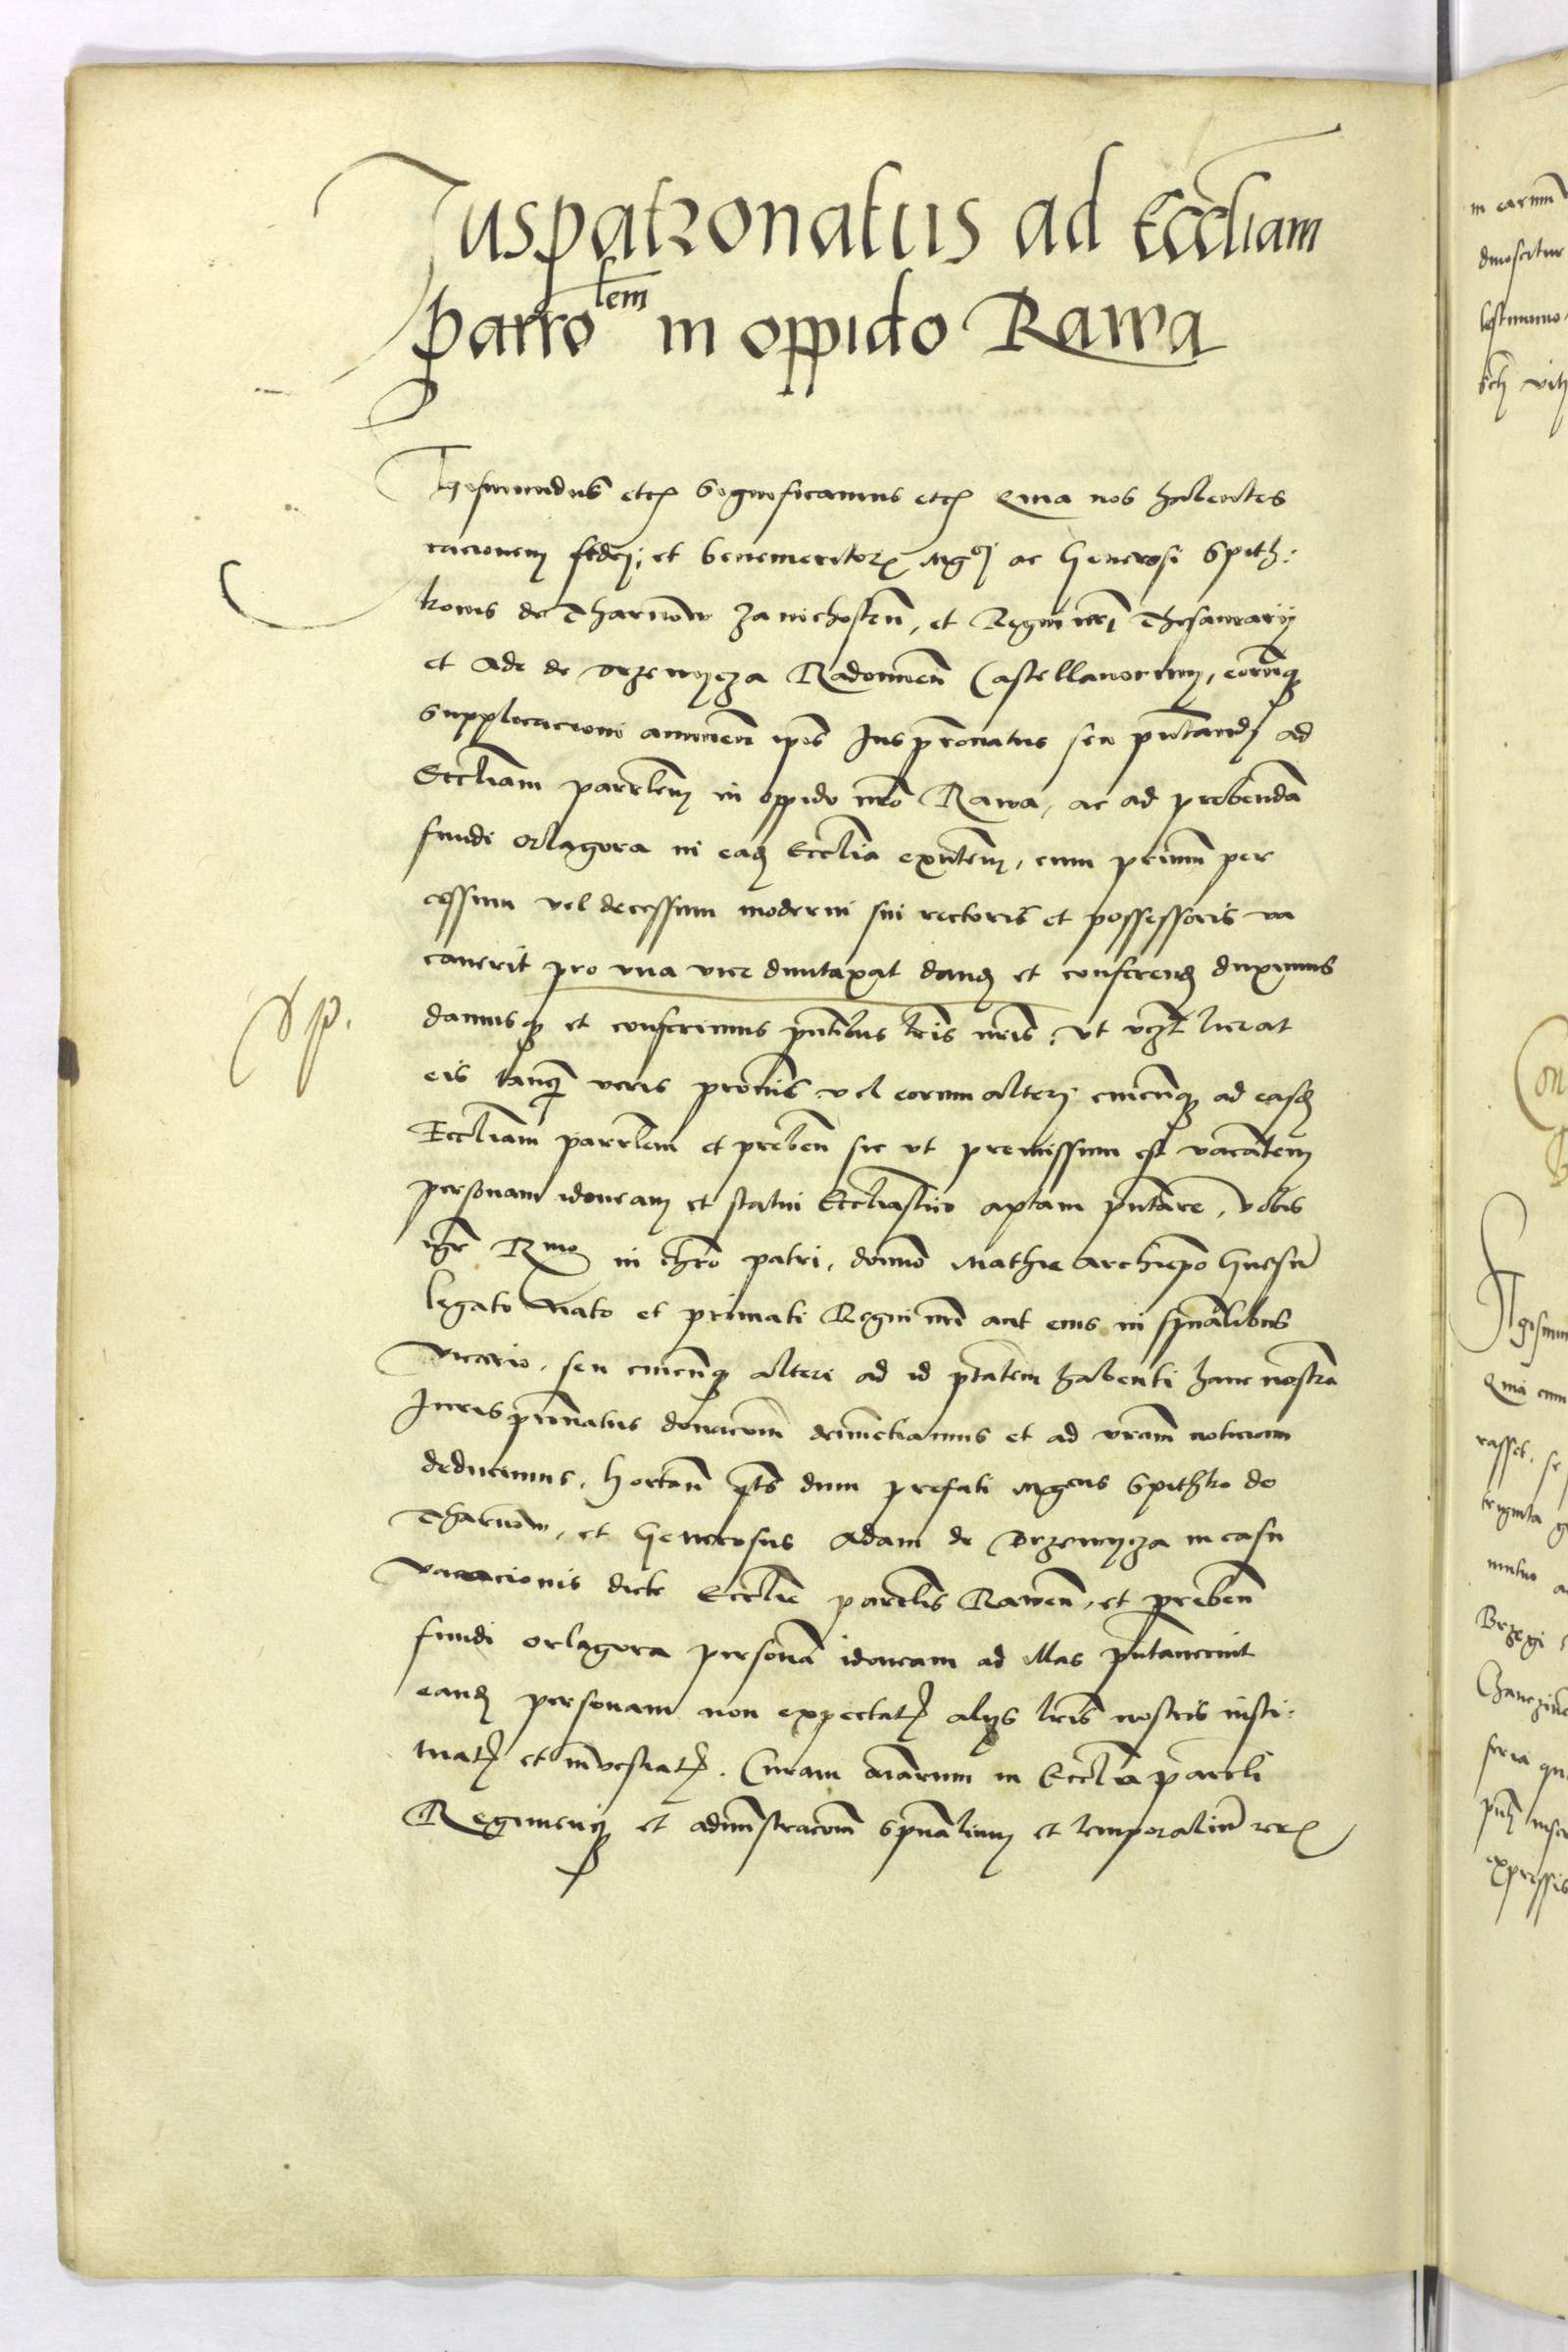 Juspatronatus ad Eccliam
parrolem in oppido Rawa
Sigismundus etc Significamus etc Quia nos habentes
racionem fidei, et benemeritorum Mgci ac Generosi Spith:
konis de Tharnow Zawichosten, et Regni nri Thesaurarij
et Ade de Drzewycza Radomien Castellanorum, eorumq
supplicacioni annuen ipis Juspronatus seu pntandi ad
Eccliam parrlem in oppido nro Rawa, ac ad prebendam
fundi Orlagora in eadem Ecclia exntem, cum primum per
cessum vel decessum moderni sui rectoris et possessoris va
caverit pro una vice duntaxat dand et conferend duximus
damusq et conferimus pntibus lris nris, Ut vzt liceat
eis tanq veris pronis vel eorum alteri cuicunq ad easd
Eccliam parrlem et preben sic ut premissum est vacantem
personam idoneam et statui Eccliastico aptam pntare, vobis
igr Rmo in chro patri, domino Mathie archiepo Gnesn
legato nato et primati Regni nri aut eius in spualibus
vicario, seu cuicunq alteri ad id ptatem habenti hanc nostram
Jurispronatus donacionem denunctiamus et ad vram noticiam
deducimus, hortan pts dum prefati Mgcus Spithko de
Tharnow, et Generosus Adam de Drzewycza in casu
vacacionis dicte Ecclie parrlis Rawen, et preben
fundi Orlagora personam idoneam ad illas pntaverint
eand personam non expectatis alijs lris nostris insti:
tuatis et investiatis. Curam aiarum in Ecclia parrli
Regimenq et administracionem spualium et temporalium rerum
in earum
dinoscitur
on
Quia cum
rasset, se
triginta
Brzegi
feria
expressis